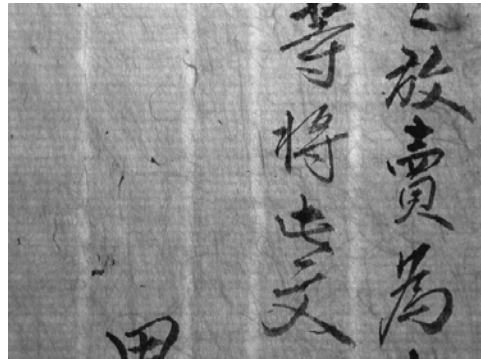 放賣為
等將此文